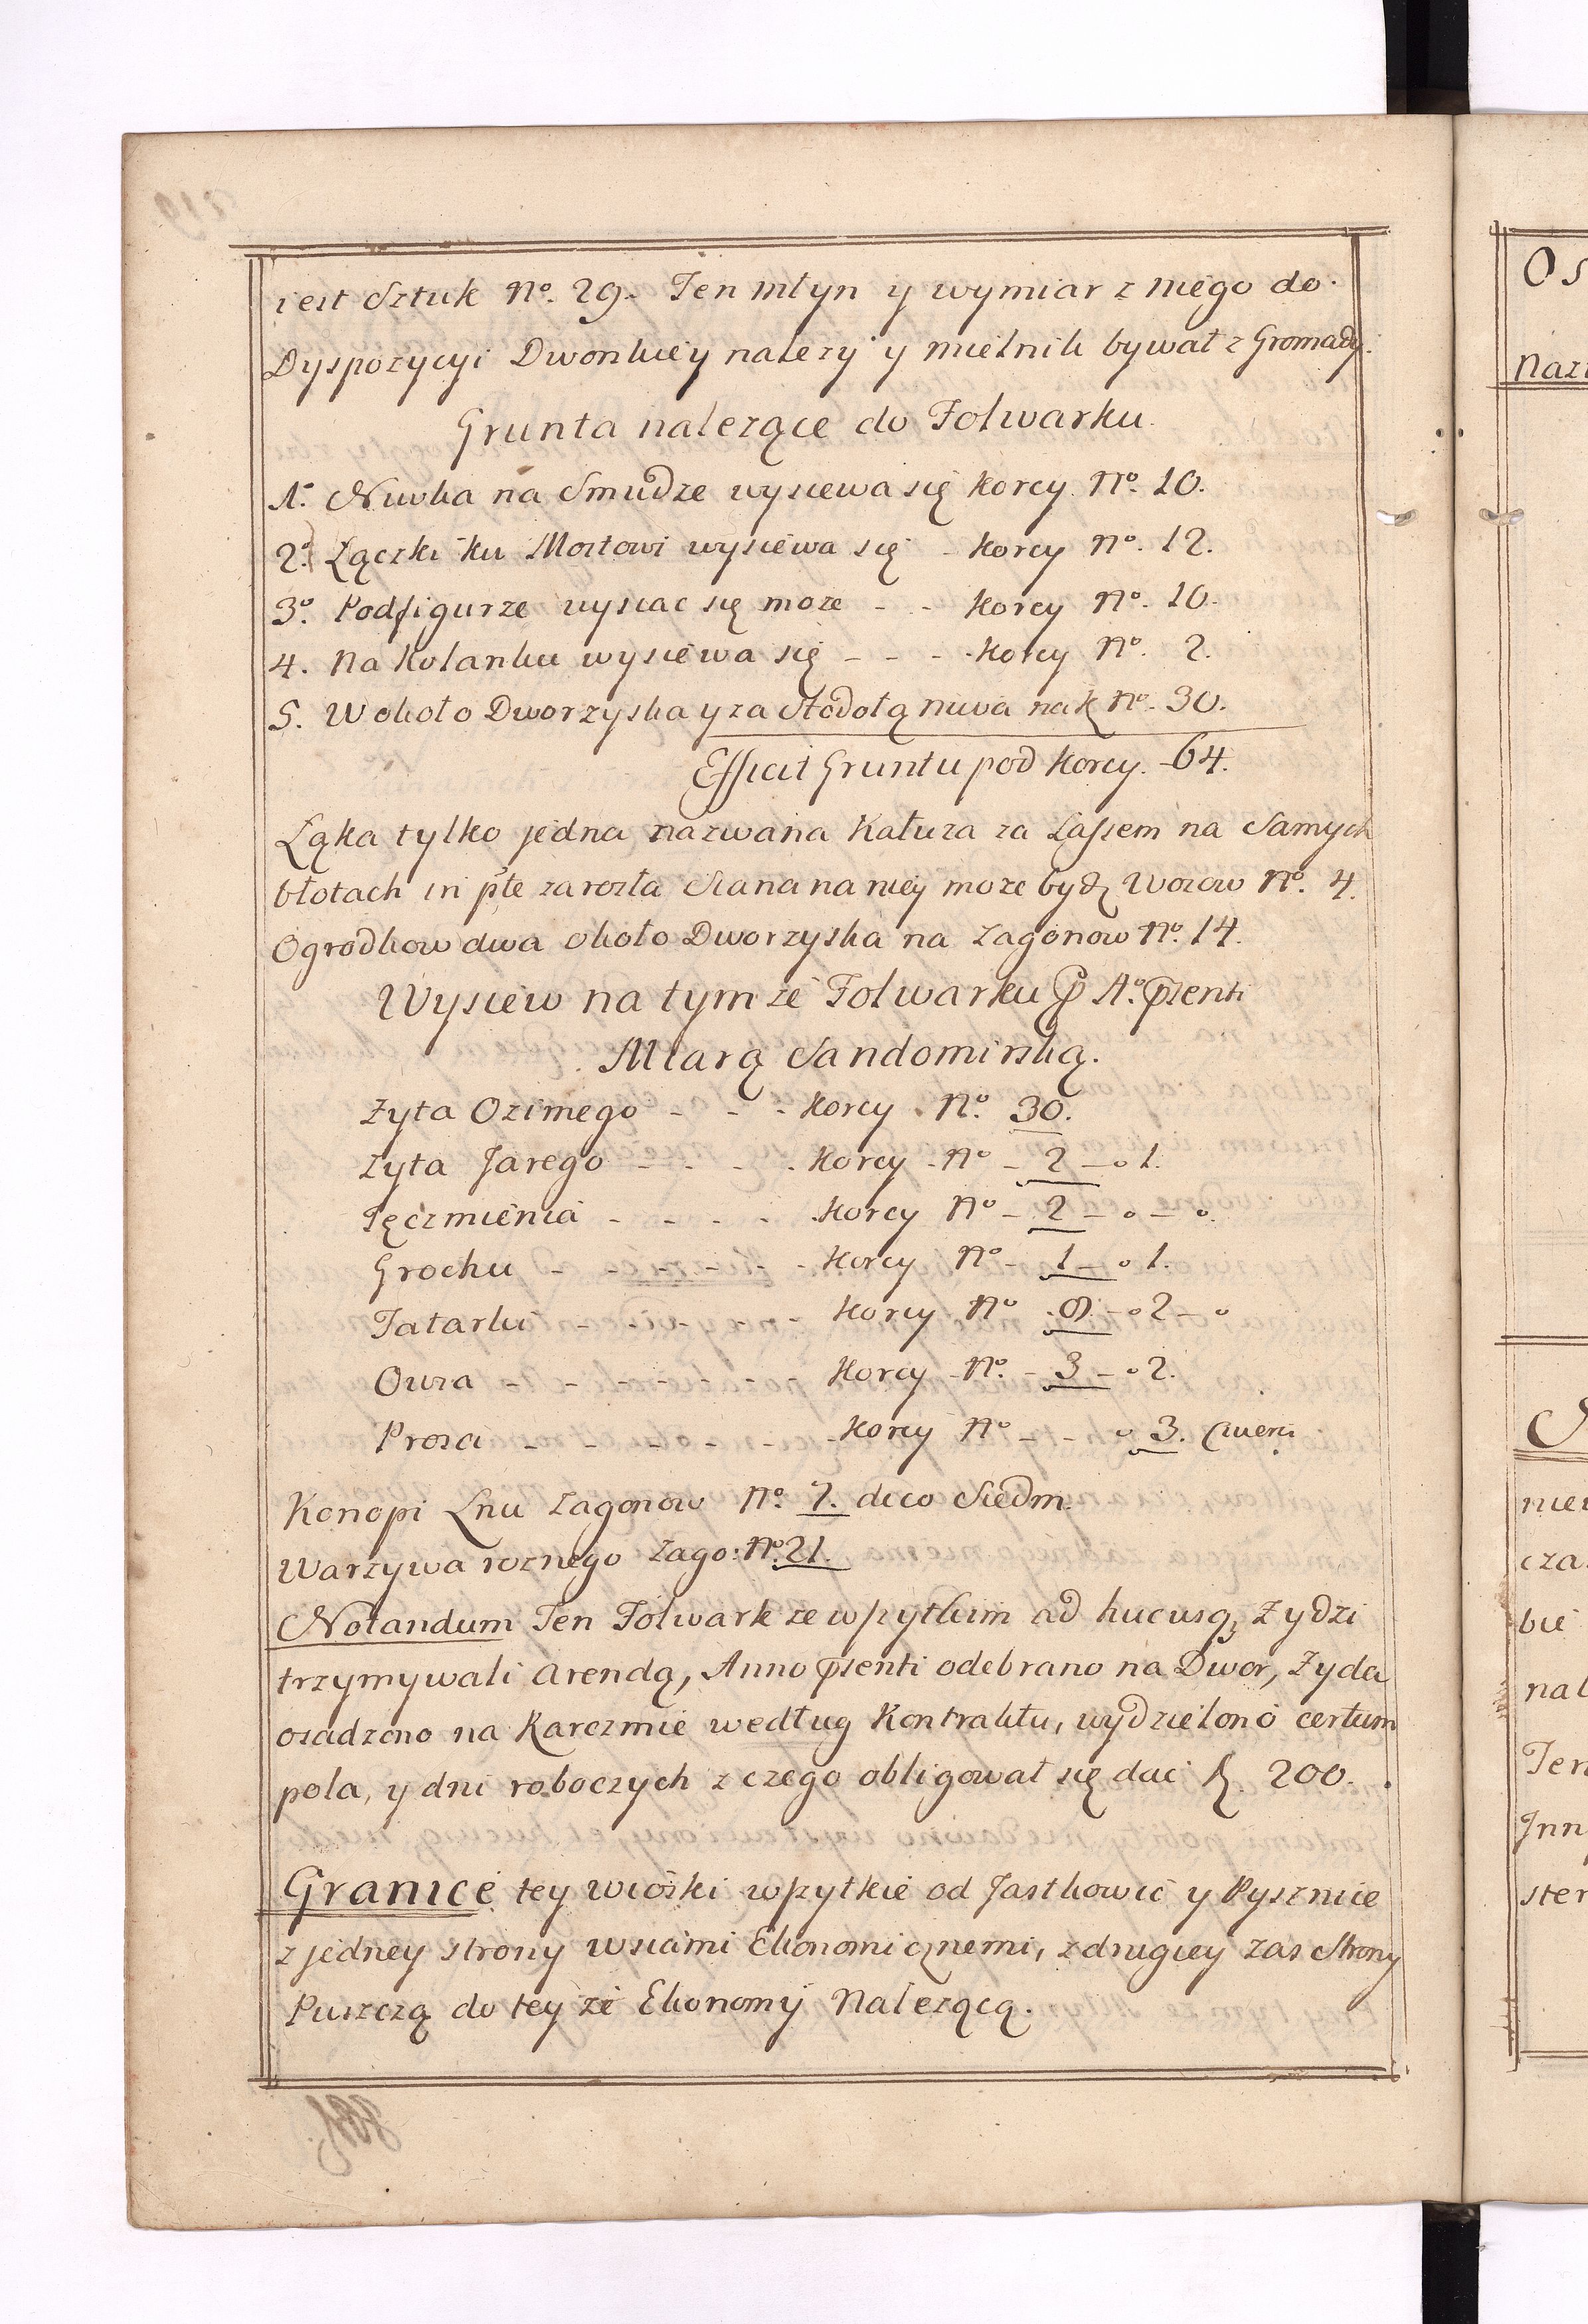 iest Sztuk No. 29. Ten młyn y wymiar z niego do
Dyspozycyi Dworskiey nalezy y mielnik bywał z Gromady.
Grunta nalezące do Folwarku.
1. Niwka na Smudze wysiewa się Korcy No. 10.
2o. Łączki ku Mostowi wysiewa się - Korcy No. 12.
3o. Podfigurze wysiac się moze - - Korcy No. 10.
4. Na Kolanku wysiewa się - - - Korcy No. 2.
5. Wokoło Dworzyska y za Stodołą niwa na K No. 30.
Efficit Gruntu pod Korcy. - 64.
Łąka tylko jedna nazwana Kałuza za Lassem na Samych
błotach in pte zarosła Siana na niey moze bydz Wozow No. 4.
Ogrodkow dwa około Dworzyska na Zagonow No. 14.
Wysiew na tym ze Folwarku P Ao. Psenti
Miarą Sandomirską.
Zyta Ozimego - - - Korcy No. 30.
Zyta Jarego - - - - Korcy No - 2 - o 1.
Jęczmienia - - - - Korcy No - 2 - o - o.
Grochu - - - - - Korcy No - 1 - o 1.
Tatarki - - - - - Korcy No 0 - o 2 - o
Owsa - - - - - - Korcy No. - 3 - o 2.
Prosa - - - - - - Korcy No - - o 3. Cwerci
Konopi Lnu Zagonow No. 7. dico Siedm.
Warzywa roznego Zago: No. 21.
Notandum Ten Folwark ze wszytkim ad hucusq3 Zydzi
trzymywali Arendą, Anno Psenti odebrano na Dwor, Zyda
osadzono na Karczmie według Kontraktu, wydzielono certum
pola, y dni roboczych z czego obligował się dac f. 200.
Granice tey wioski wszytkie od Jastkowic y Pysznice
z jedney strony wsiami Ekonomicznemi, z drugiey zas Strony
Puszczą do tey ze Ekonomy Nalezącą.